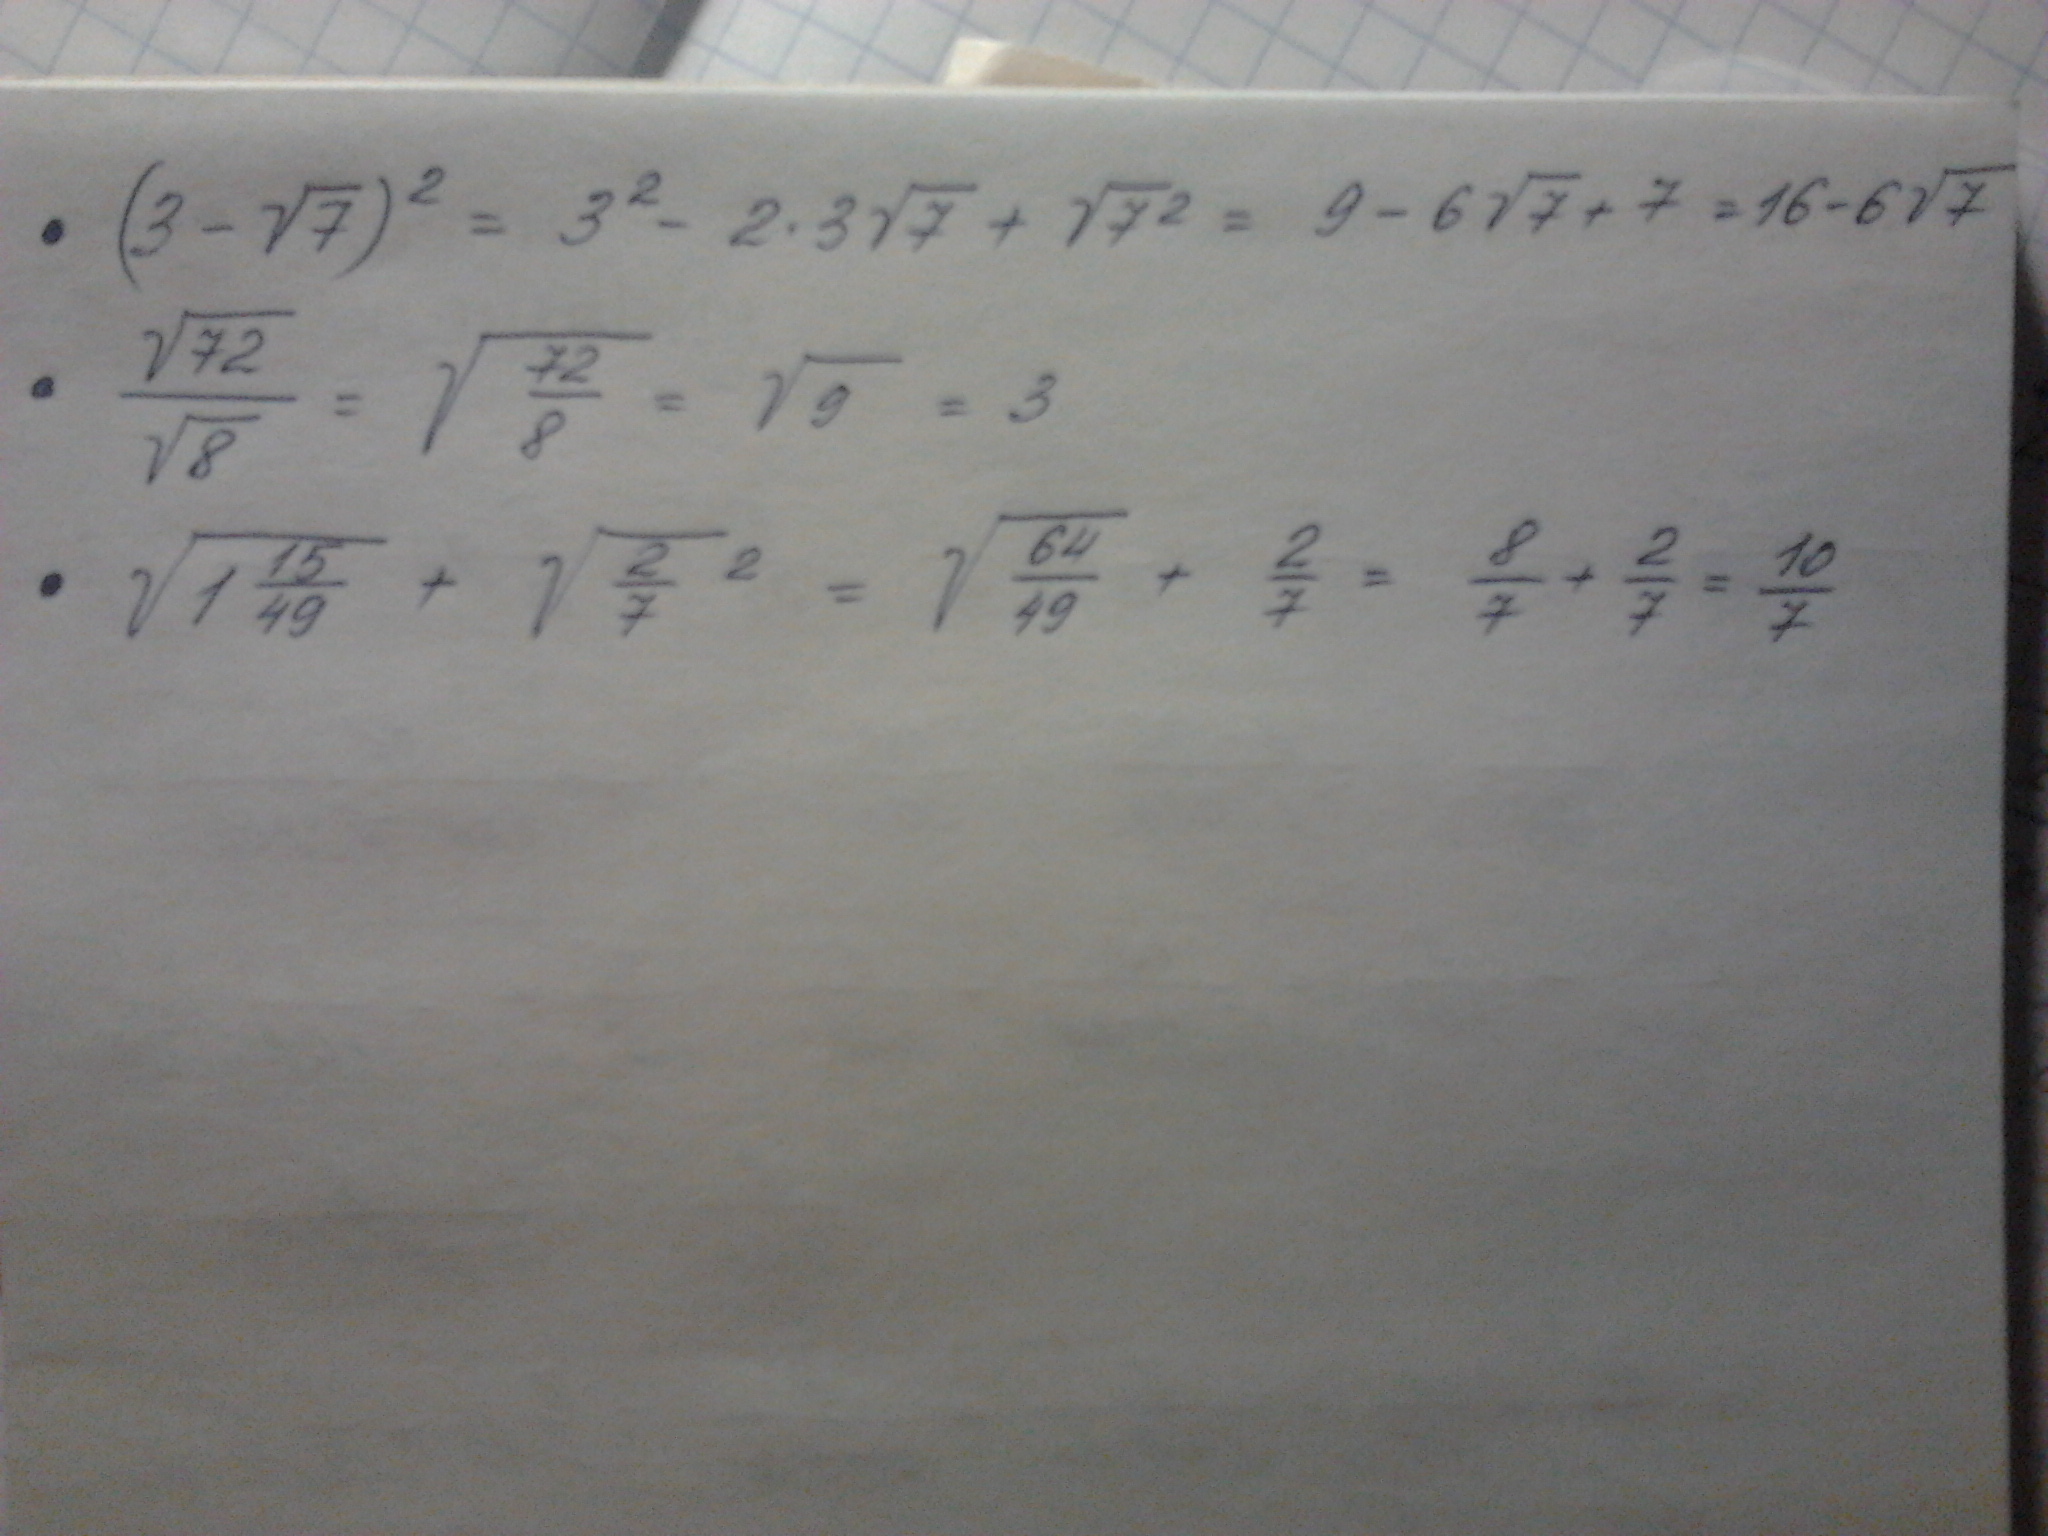 • (3 - √7)² = 3² - 2·3√7 + √7² = 9 - 6√7 + 7 = 16 - 6√7
• √72/√8 = √(72/8) = √9 = 3
• √(1 15/49) + √(2/7)² = √(64/49) + 2/7 = 8/7 + 2/7 = 10/7